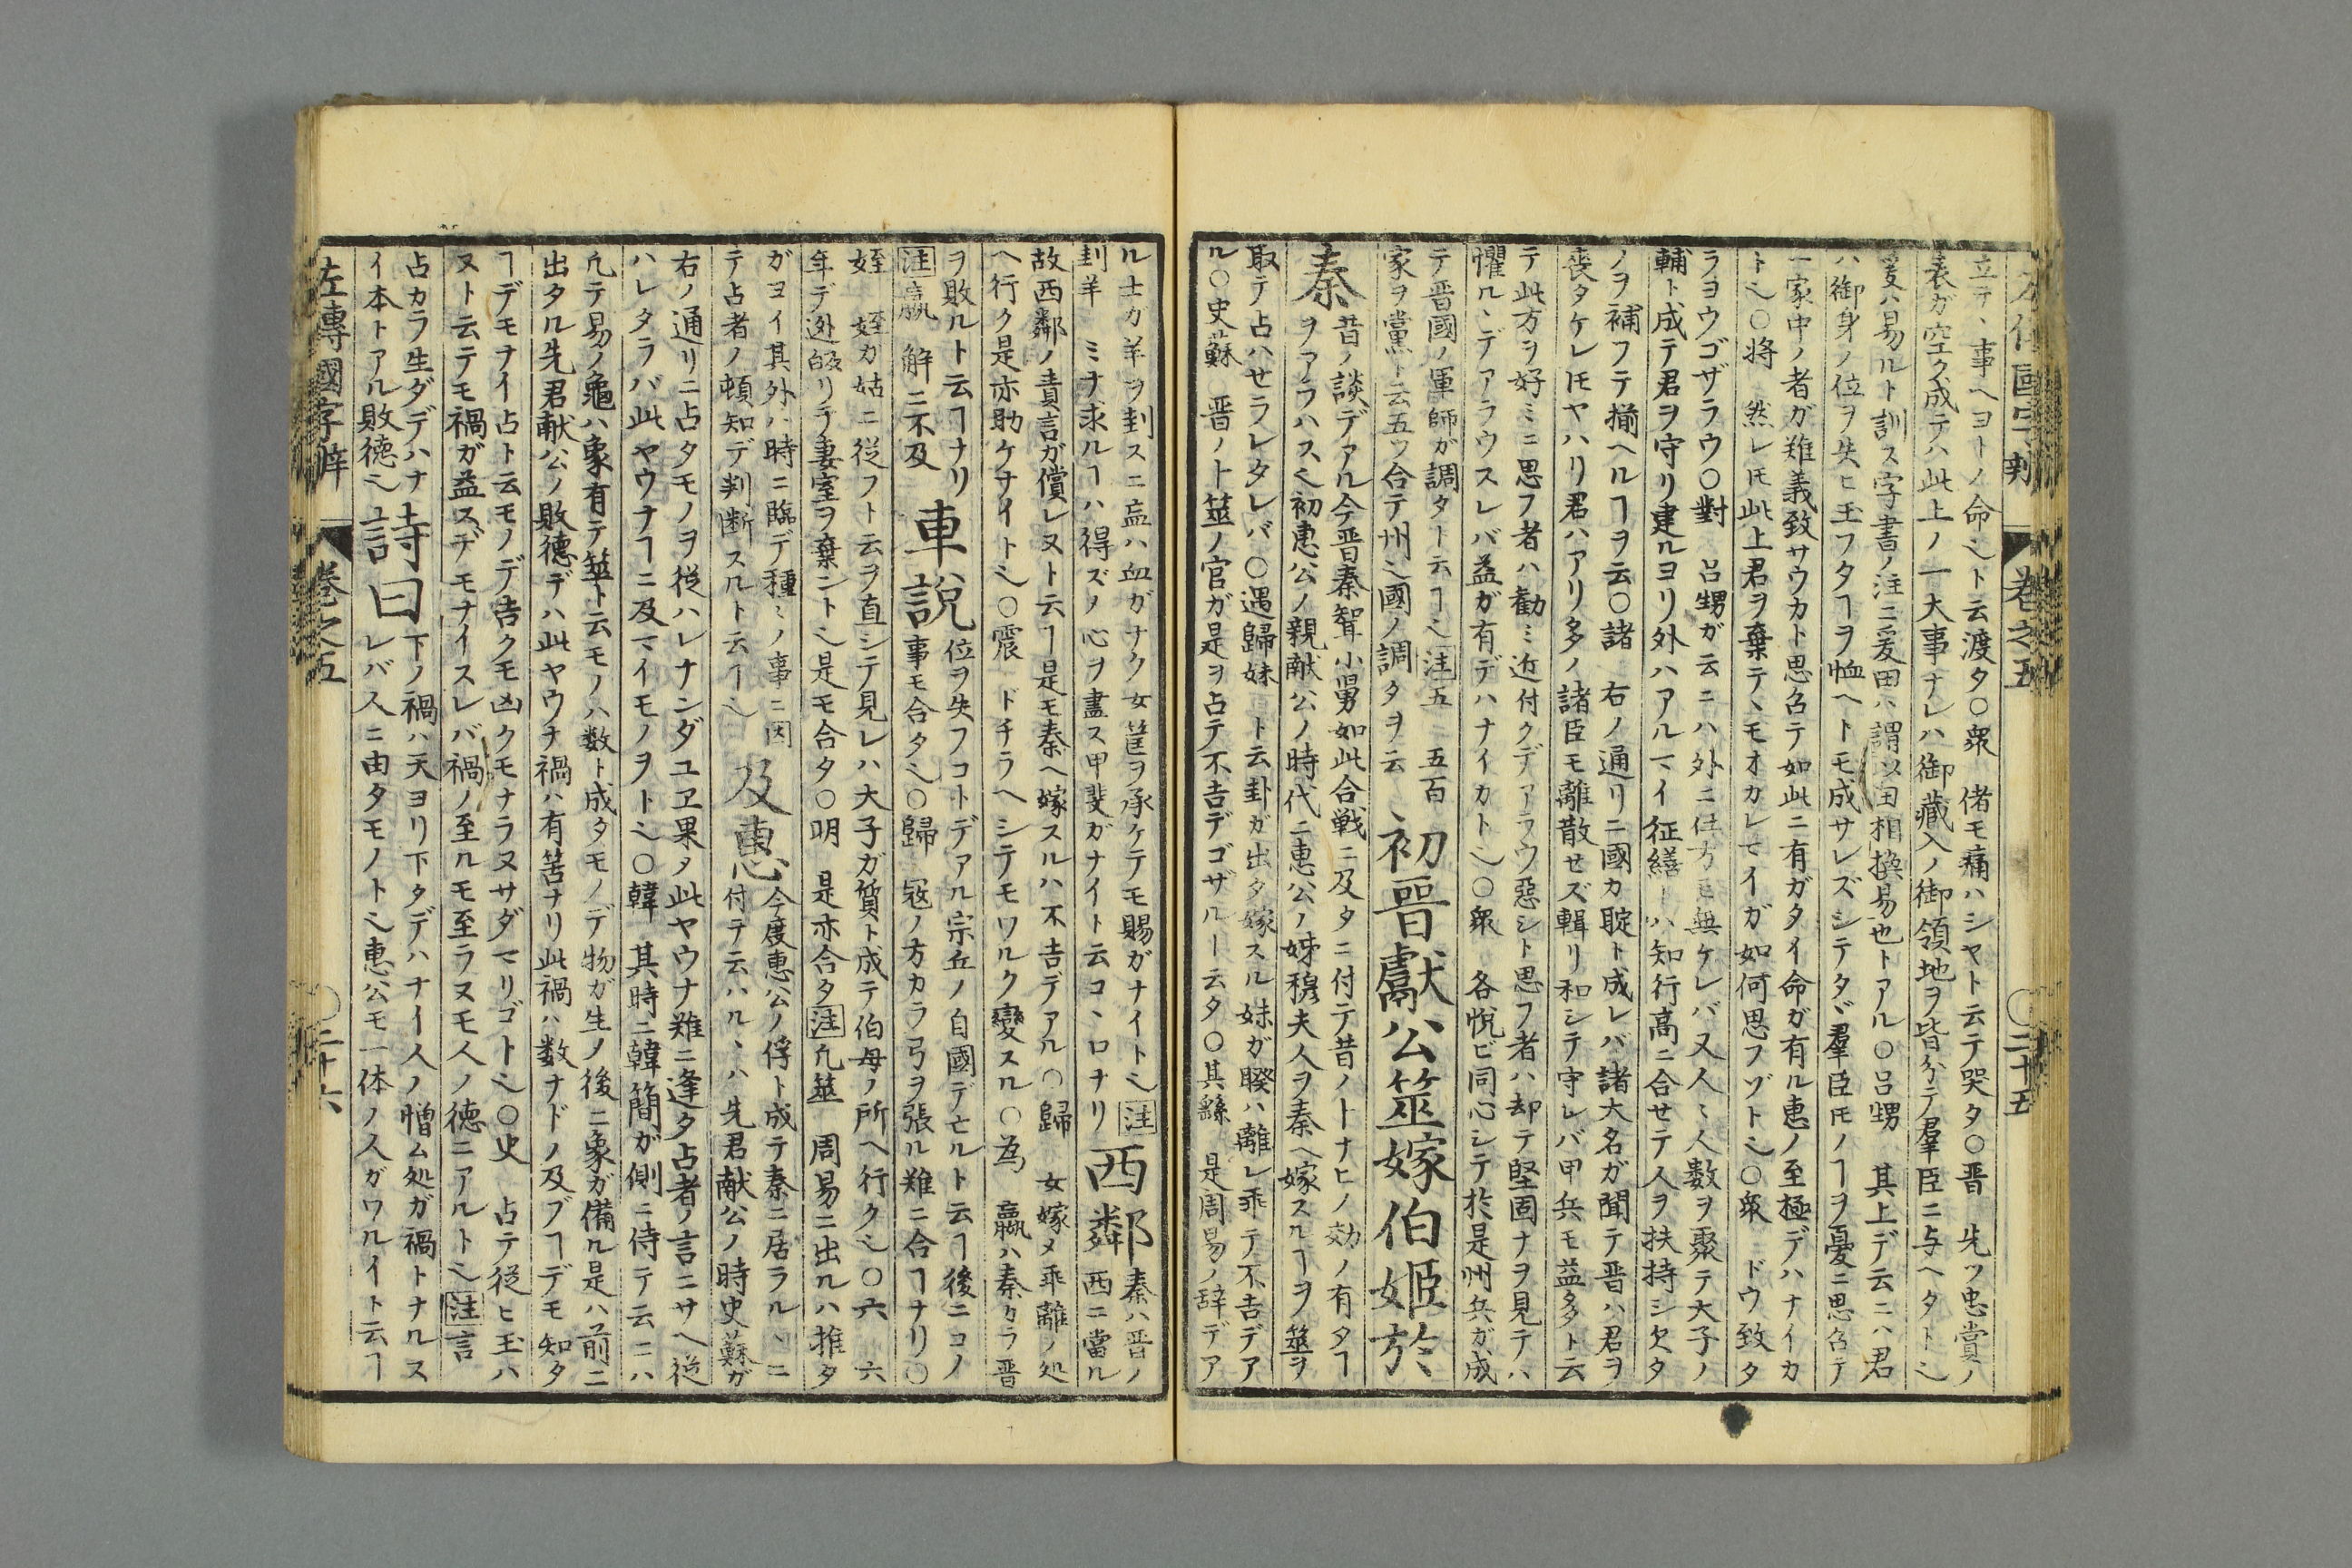 左傳國字辨 巻之五 〇二十五
立テヽ事ヘヨトノ命也ト云渡タ〇衆 偖モ痛ハシヤト云テ哭タ〇晋 先ツ忠賞ノ
表ガ空ク成テハ此上ノ一大事ナレハ御藏入ノ御領地ヲ皆分テ羣臣ニ与ヘタト也
爰ハ易ルト訓ス字書ノ注ニ爰田ハ謂以田相換易也トアル〇呂甥 其上デ云ニハ君
ハ御身ノ位ヲ失ヒ玉フタヿヲ恤ヘトモ成サレズシテタヾ羣臣𪜈ノヿヲ憂ニ思召テ
一家中ノ者ガ難義致サウカト思召テ如此ニ有ガタイ命ガ有ル惠ノ至極デハナイカ
ト也〇將 然レ𪜈此上君ヲ棄テヽモオカレマイガ如何思フゾト也〇衆 ドウ致タ
ラヨウゴザラウ〇對 呂甥ガ云ニハ外ニ仕方モ無ケレバ又人〻人数ヲ聚テ大子ノ
輔ト成テ君ヲ守リ建ルヨリ外ハアルマイ征繕トハ知行高ニ合セテ人ヲ扶持シ欠タ
ノヲ補フテ揃ヘルヿヲ云〇諸 右ノ通リニ國カ聢ト成レバ諸大名ガ聞テ晋ハ君ヲ
喪タケレ𪜈ヤハリ君ハアリ多ノ諸臣モ離散セズ輯リ和シテ守レバ甲兵モ益多ト云
テ此方ヲ好ミニ思フ者ハ勸ミ近付クデアラウ惡シト思フ者ハ却テ堅固ナヲ見テハ
懼ルヽデアラウスレバ益ガ有デハナイカト也〇衆 各悦ビ同心シテ於是州兵ガ成
テ晋國ノ軍師ガ調タト云ヿ也注五 五百
家ヲ黨ト云五ツ合テ州也國ノ調タヲ云 初晋獻公筮嫁伯姬於
秦 昔ノ談デアル今晋秦聟小舅如此合戦ニ及タニ付テ昔ノトナヒノ効ノ有タヿ
ヲアラハス也初惠公ノ親献公ノ時代ニ惠公ノ姊穆夫人ヲ秦ヘ嫁スルヿヲ筮ヲ
取テ占ハセラレタレバ〇遇歸妹 ト云卦ガ出タ嫁スル妹ガ睽ハ離レ乖テ不吉デア
ル〇史蘇 晋ノト筮ノ官ガ是ヲ占テ不吉デゴザルト云タ〇其繇 是周易ノ辞デア
ル士カ羊ヲ刲スニ衁ハ血ガナク女筐ヲ承ケテモ賜ガナイト也注 西鄰 秦ハ晋ノ
刲羊 ミナ求ルヿハ得ズノ心ヲ盡ス甲斐ガナイト云コヽロナリ 西ニ當ル
故西鄰ノ責言ガ償レヌト云ヿ是モ秦ヘ嫁スルハ不吉デアル〇歸 女嫁メ乖離ノ処
ヘ行ク是亦助ケナイト也〇震 ドチラヘシテモワルク變スル〇為 嬴ハ秦カラ晋
ヲ敗ルト云ヿナリ 車説 位ヲ失フコトデアル宗丘ノ自國デセルト云ヿ後ニコノ
注嬴 解ニ不及 事モ合タ也〇歸 冦ノ方カラ弓ヲ張ル難ニ合ヿナリ〇
姪 姪カ姑ニ從フト云ヲ直シテ見レハ大子ガ質ト成テ伯母ノ所ヘ行ク也〇六 六
年デ迯皈リテ妻室ヲ棄ント也是モ合タ〇明 是亦合タ注凢筮 周易ニ出ルハ推タ
ガヨイ其外ハ時ニ臨デ種〻ノ事ニ因 及惠 今度惠公ノ俘ト成テ秦ニ居ラルヽニ
テ占者ノ頓知デ判断スルト云ヿ也 付テ云ハルヽハ先君献公ノ時史蘇ガ
右ノ通リニ占タモノヲ從ハレナンダユヱ果タ此ヤウナ難ニ逢タ占者ノ言ニサヘ從
ハレタラバ此ヤウナヿニ及マイモノヲト也〇韓 其時ニ韓簡ガ側ニ侍テ云ニハ
凢テ易ノ龜ハ象有テ筮ト云モノハ数ト成タモノデ物ガ生ノ後ニ象ガ備ル是ハ前ニ
出タル先君献公ノ敗德デハ此ヤウナ禍ハ有筈ナリ此禍ハ数ナドノ及ブヿデモ知タ
ヿデモナイ占ト云モノデ吉クモ凶クモナラヌサダマリゴト也〇史 占テ從ヒ玉ハ
ヌト云テモ禍ガ益スデモナイスレバ禍ノ至ルモ至ラヌモ人ノ德ニアルト也注言
占カラ生ダデハナ 詩曰 下ノ禍ハ天ヨリ下タデハナイ人ノ憎ム処ガ禍トナルス
イ本トアル敗徳也 レバスニ由タモノト也惠公モ一体ノ人ガワルイト云ヿ
左傳國字辨 巻之五 〇二十六